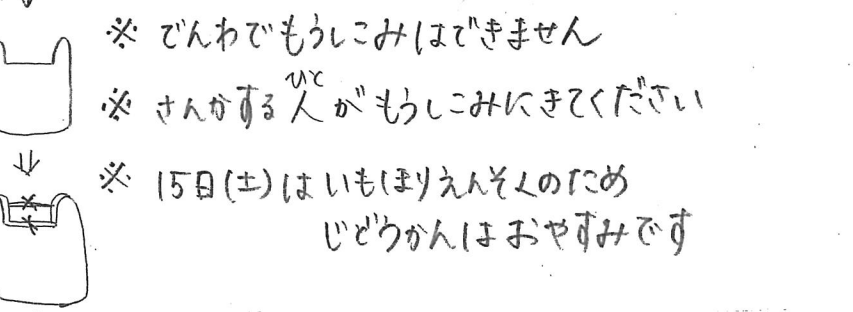 ※ でんわでもうしこみはできません
※ さんかする人がもうしこみにきてください
ひと
※ 15日(土)はいもほりえんそくのため
じどうかんはおやすみです